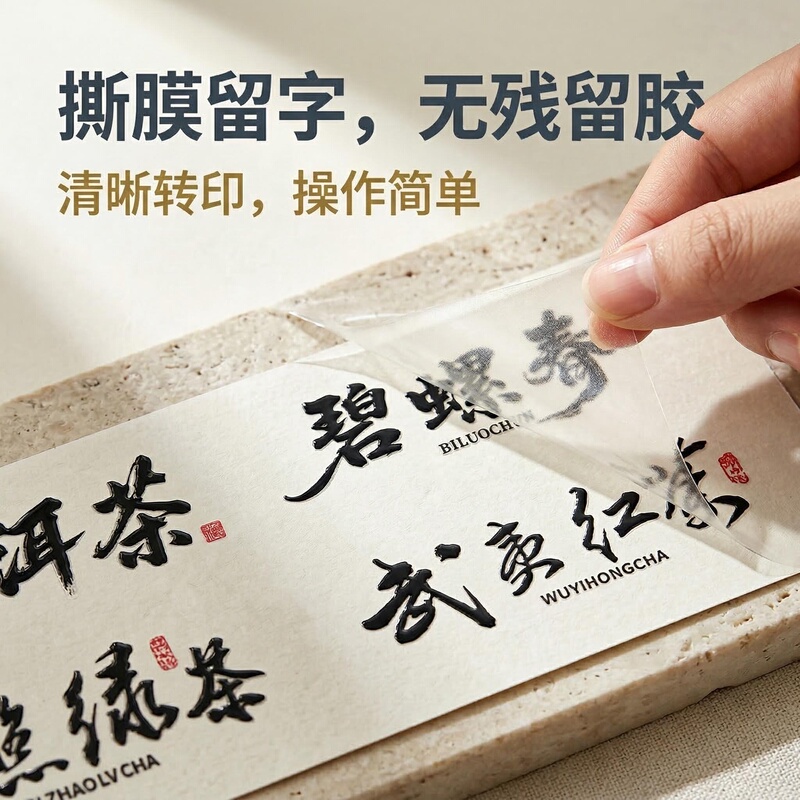 撕膜留字，无残留胶
清晰转印，操作简单
碧螺春
BILUOCHUN
洱茶
武夷红茶
WUYIHONGCHA
绿茶
ZHAOLVCHA